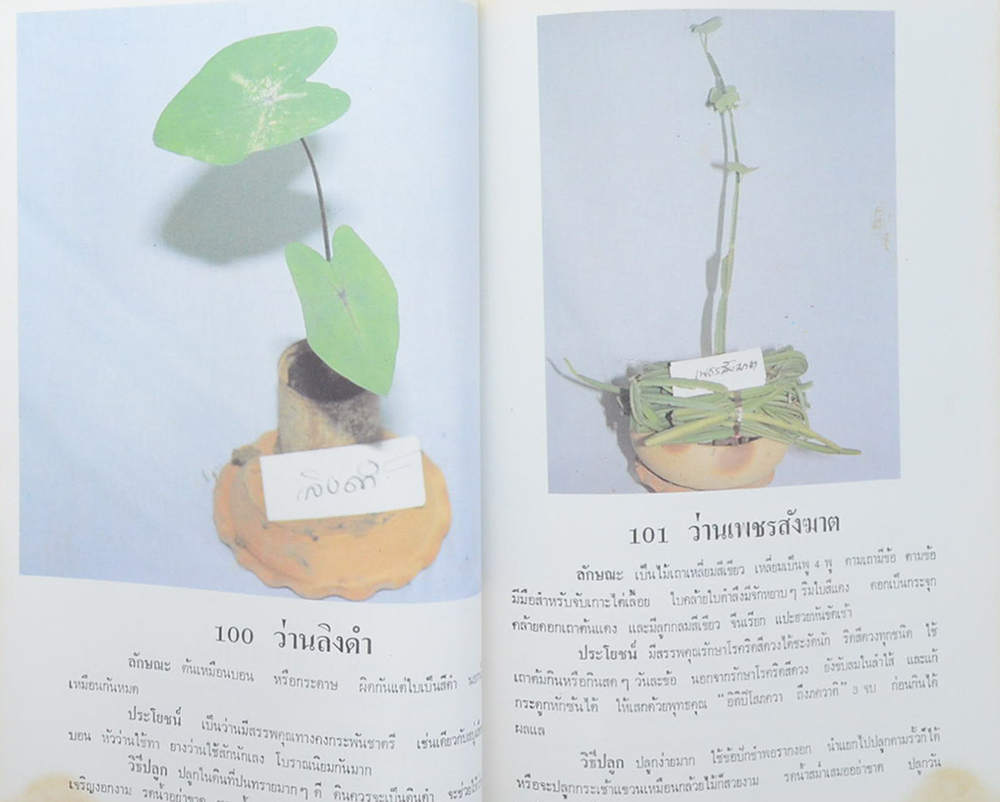 ลิงดำ
100 ว่านลิงดำ
ลักษณะ ต้นเหมือนบอน หรือกระดาษ ผิดกันแต่ใบเป็นสีดำ
เหมือนกันหมด
ประโยชน์ เป็นว่านมีสรรพคุณทางคงกระพันชาตรี เช่นเดียวกับ
บอน หัวว่านใช้ทา ยางว่านใช้สักนักเลง โบราณนิยมกันมาก
วิธีปลูก ปลูกในดินที่ปนทรายมากๆ ดี ดินควรจะเป็นดินดำ จะช่วยให้
เจริญงอกงาม รดน้ำอย่าขาด
เพชรสังฆาต
101 ว่านเพชรสังฆาต
ลักษณะ เป็นไม้เถาเหลี่ยมสีเขียว เหลี่ยมเป็นพู 4 พู ตามเถามีข้อ ตามข้อ
มีมือสำหรับจับเกาะไต่เลื้อย ใบคล้ายใบตำลึงมีจักหยาบๆ ริมใบสีแดง ดอกเป็นกระจุก
คล้ายดอกเถาคันแดง และมีลูกกลมสีเขียว จีนเรียก แปะฮวยหันขัดเช้า
ประโยชน์ มีสรรพคุณรักษาโรคริดสีดวงได้ชะงัดนัก ริดสีดวงทุกชนิด ใช้
เถาต้มกินหรือกินสดๆ วันละข้อ นอกจากรักษาโรคริดสีดวง ยังขับลมในลำไส้ และแก้
กระดูกหักซ้นได้ ให้เสกด้วยพุทธคุณ "อิติปิโสภควา ถึงภควาติ" 3 จบ ก่อนกินได้
ผลแล
วิธีปลูก ปลูกง่ายมาก ใช้ข้อปักชำพอรากงอก นำแยกไปปลูกตามรั้วก็ได้
หรือจะปลูกกระเช้าแขวนเหมือนกล้วยไม้ก็สวยงาม รดน้ำสม่ำเสมออย่าขาด ปลูกวัน